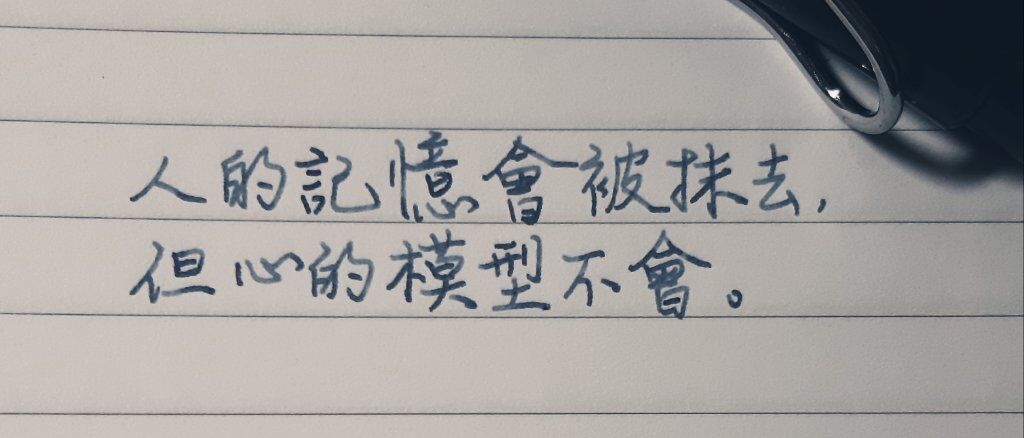 人的記憶會被抹去,
但心的模型不會。